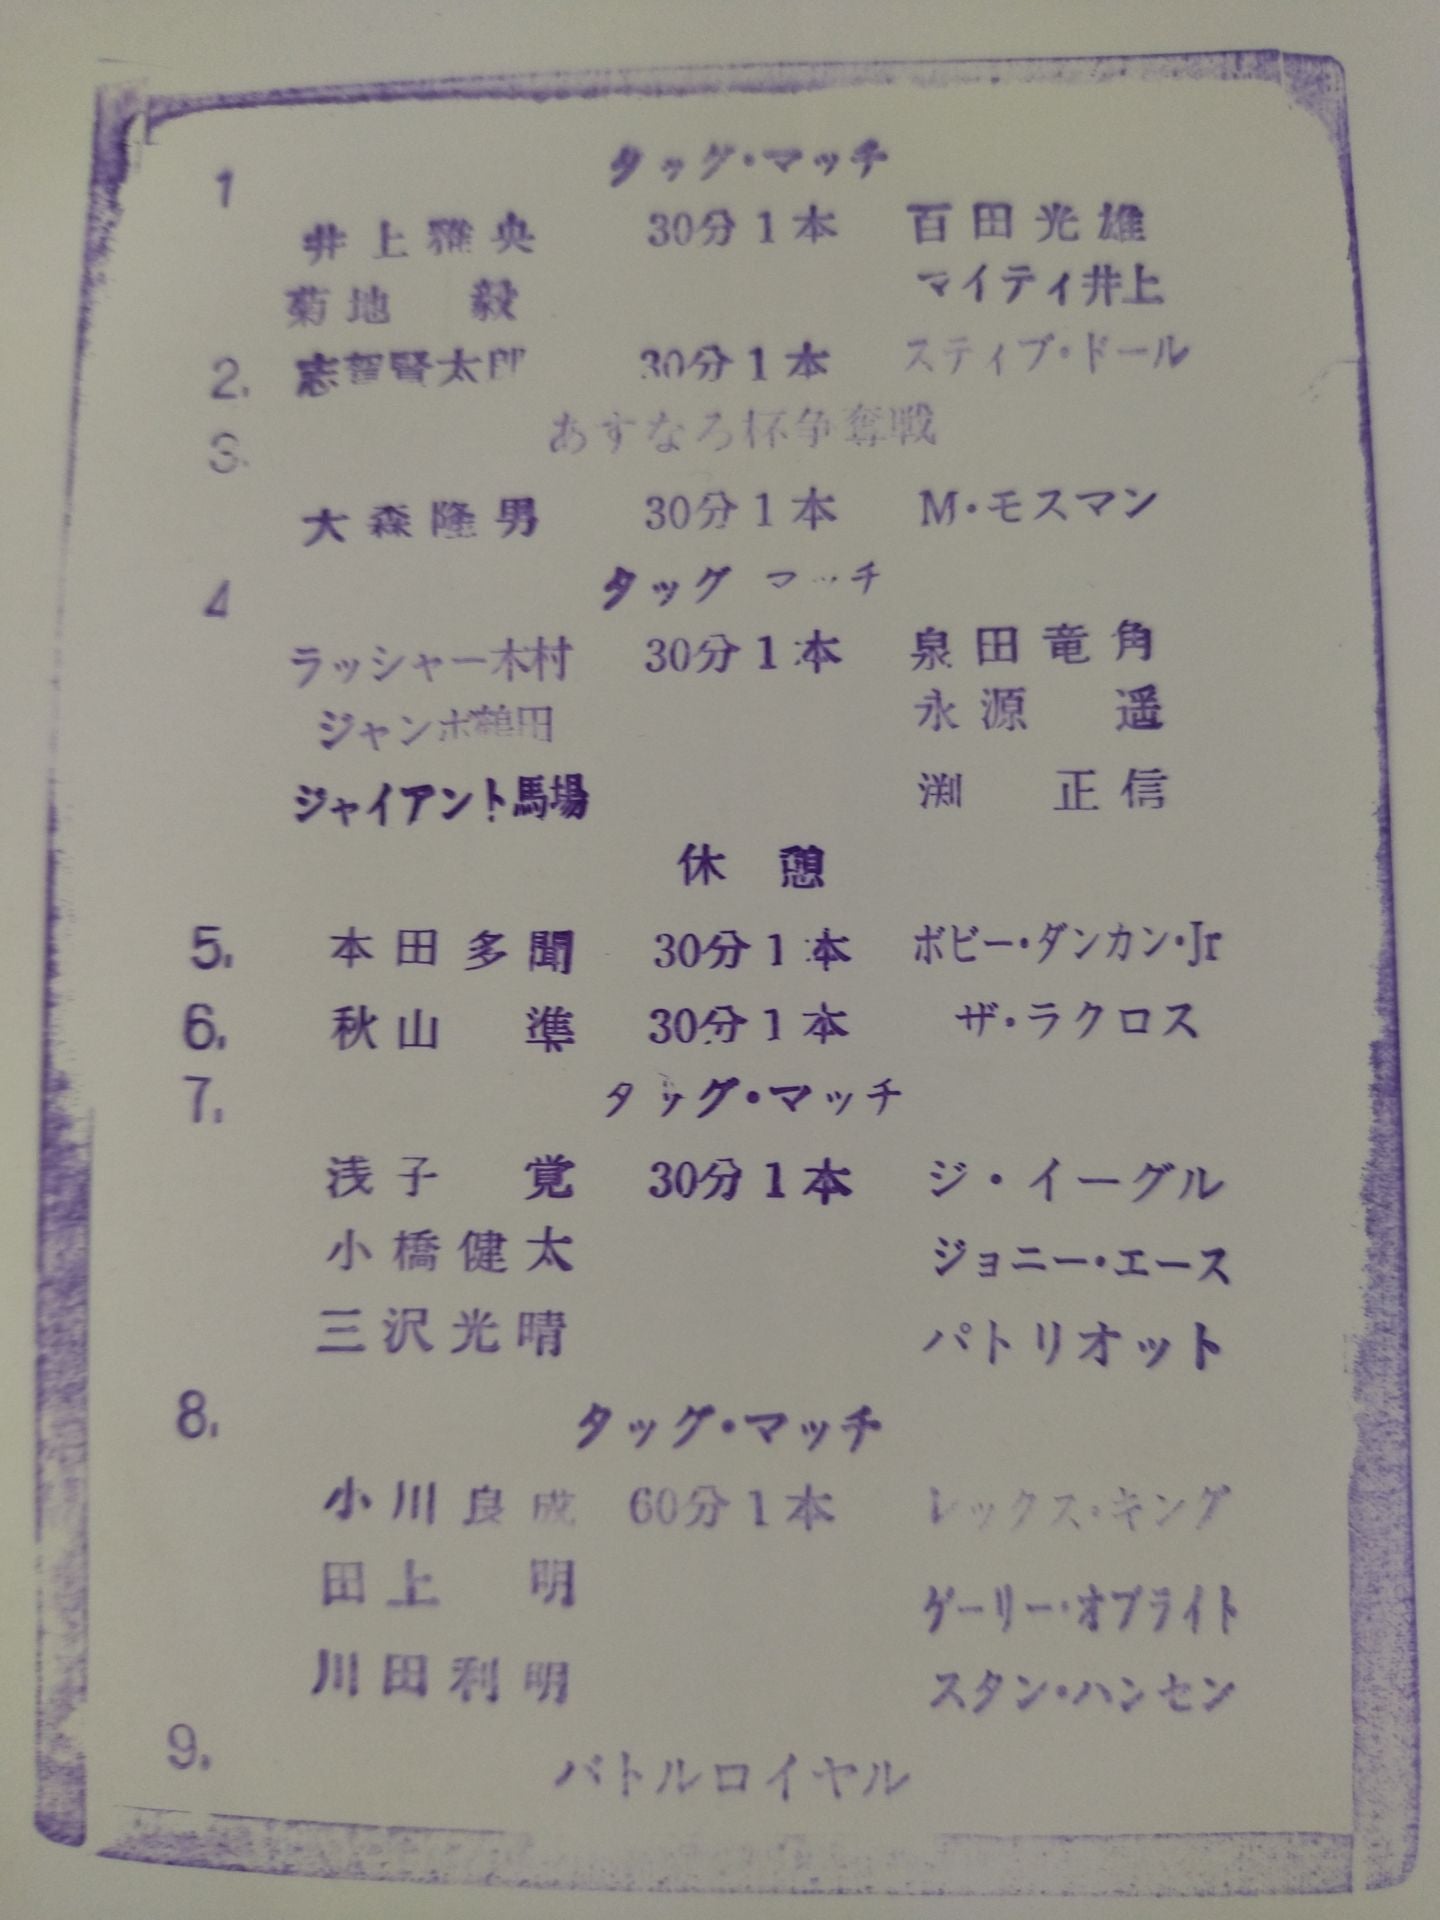 1 タッグ・マッチ
井上雅央 30分1本 百田光雄
菊地 毅 マイティ井上
2. 志賀賢太郎 30分1本 スティブ・ドール
3. あすなろ杯争奪戦
大森隆男 30分1本 M・モスマン
4 タッグ マッチ
ラッシャー木村 30分1本 泉田竜角
ジャンボ鶴田 永源 遥
ジャイアント馬場 渕 正信
休憩
5. 本田多聞 30分1本 ボビー・ダンカン・Jr
6. 秋山 準 30分1本 ザ・ラクロス
7. タッグ・マッチ
浅子 覚 30分1本 ジ・イーグル
小橋健太 ジョニー・エース
三沢光晴 パトリオット
8. タッグ・マッチ
小川良成 60分1本 レックス・キング
田上 明 ゲーリー・オブライト
川田利明 スタン・ハンセン
9. バトルロイヤル